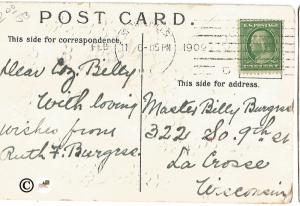 POST CARD.
This side for correspondence.
FEB 11 6-05 PM 1909
This side for address.
Dear Coz. Billy
With loving
wishes from
Ruth F. Burgess.
Master Billy Burgess
322 So. 9th St
La Crosse
Wisconsin
©